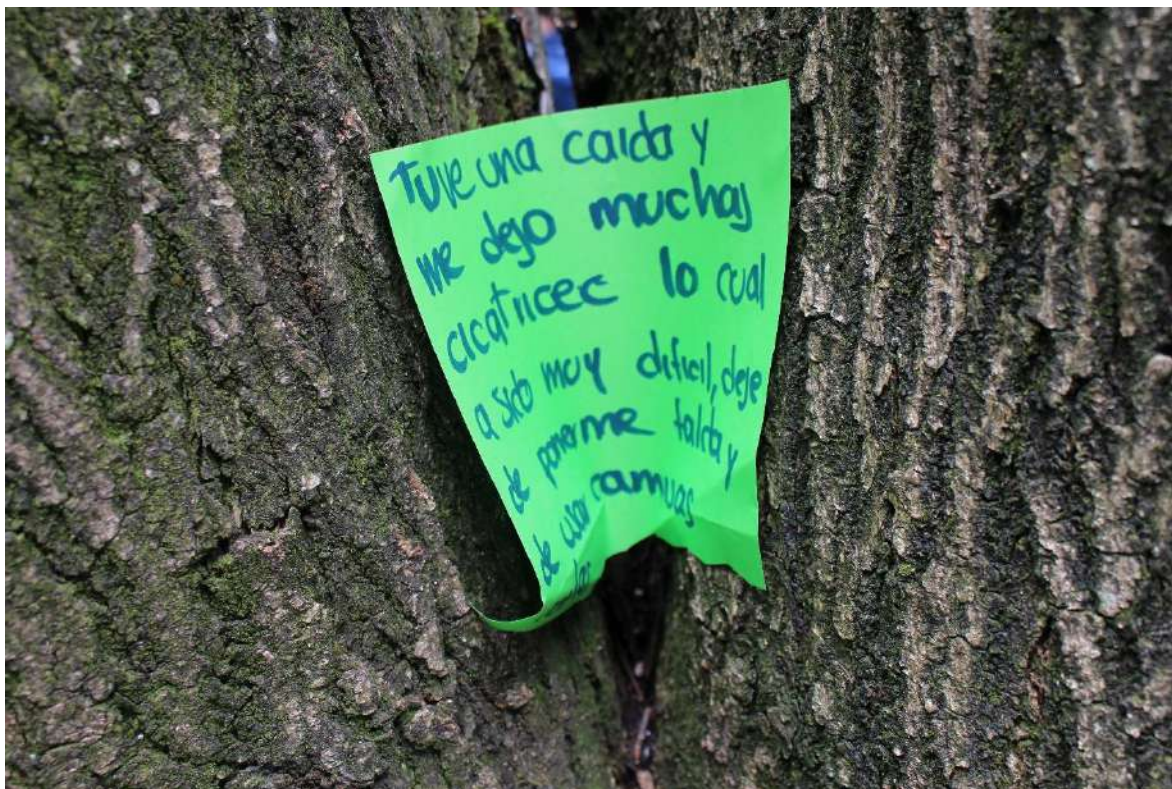 Tuve una caida y
me dejo muchas
cicatricec lo cual
a sido muy dificil, deje
de ponerme falda y
de usar